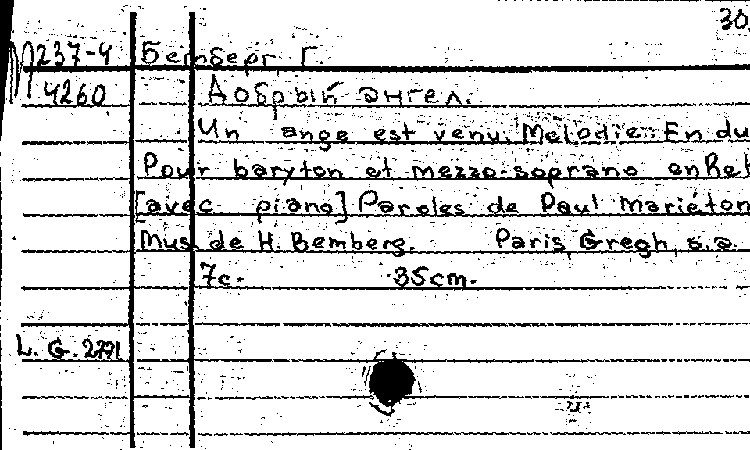 30
П237-4 Бемберг, Г.
4260 Добрый ангел.
Un ange est venu. Melodie. En du
Pour baryton et mezzo-soprano en Re b
[avec piano] Paroles de Paul Mariéton
Mus. de H. Bemberg. Paris, Gregh, s.a.
7c. 35cm.
L. G. 2771